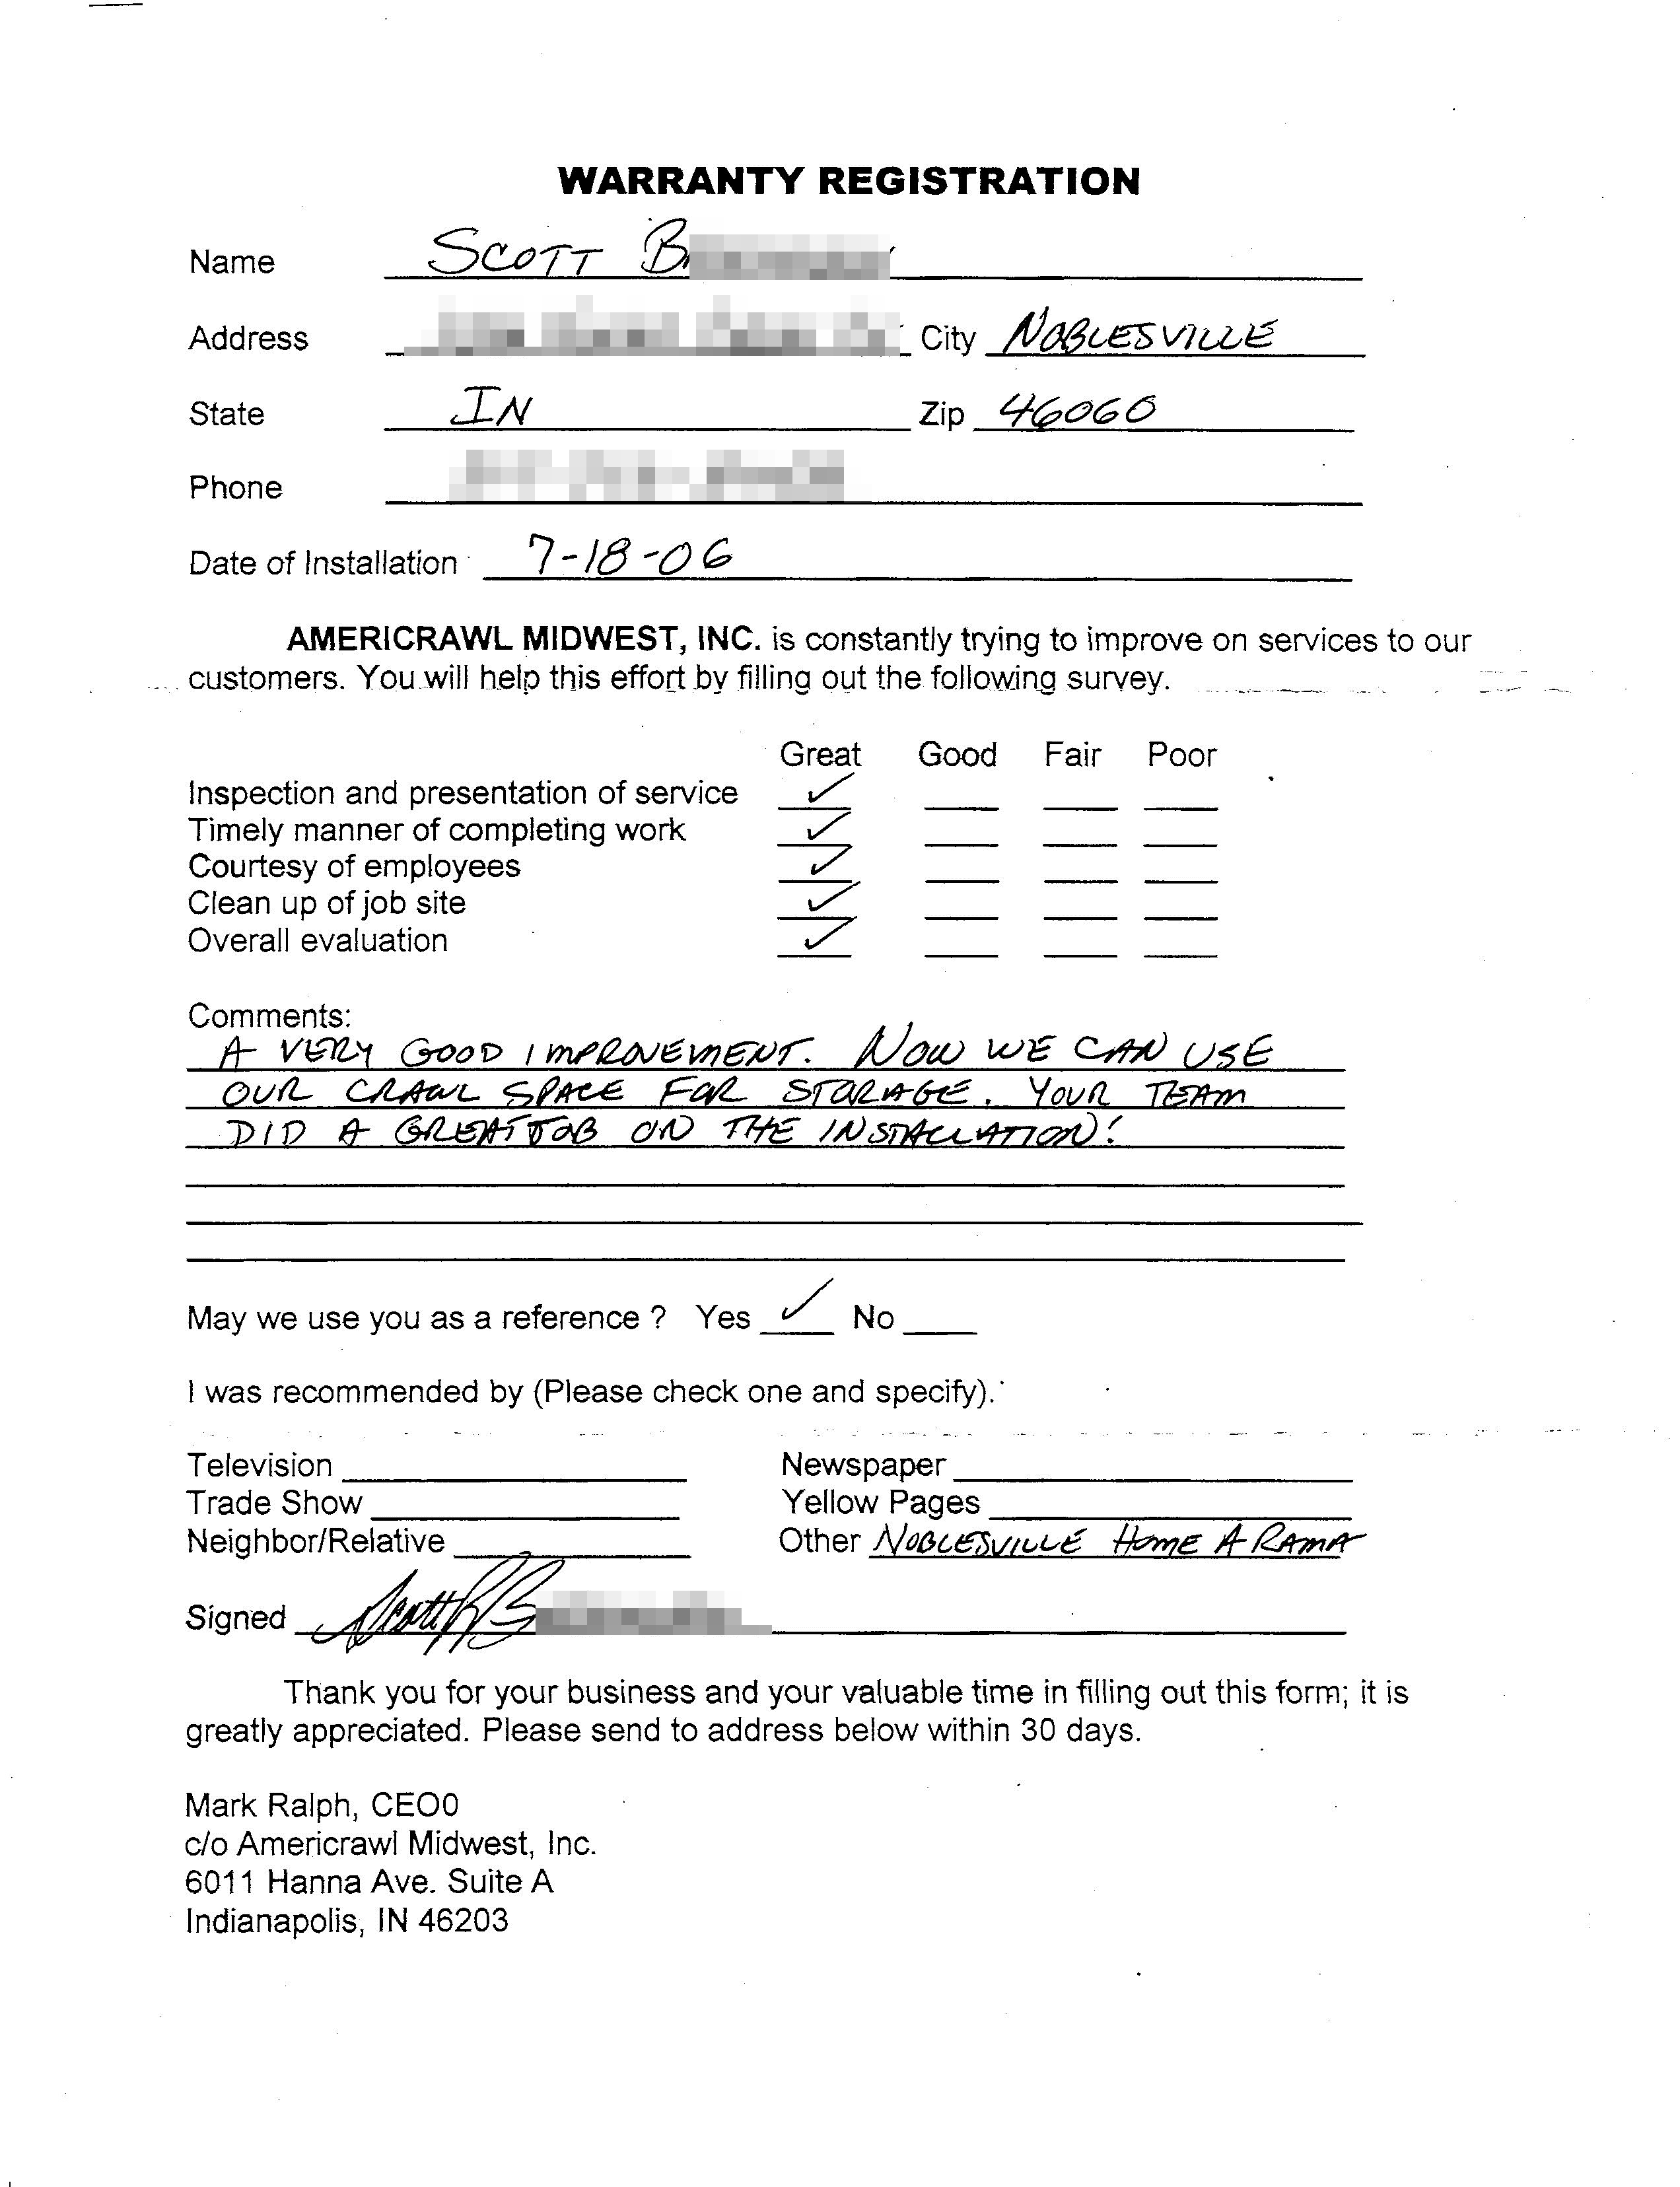 WARRANTY REGISTRATION
Name SCOTT B
Address City NOBLESVILLE
State IN Zip 46060
Phone
Date of Installation 7-18-06
AMERICRAWL MIDWEST, INC. is constantly trying to improve on services to our
customers. You will help this effort by filling out the following survey.
Great Good Fair Poor
Inspection and presentation of service ✓
Timely manner of completing work ✓
Courtesy of employees ✓
Clean up of job site ✓
Overall evaluation ✓
Comments:
A VERY GOOD IMPROVEMENT. NOW WE CAN USE
OUR CRAWL SPACE FOR STORAGE. YOUR TEAM
DID A GREAT JOB ON THE INSTALLATION!
May we use you as a reference ? Yes ✓ No
I was recommended by (Please check one and specify).
Television Newspaper
Trade Show Yellow Pages
Neighbor/Relative Other NOBLESVILLE HOME A RAMA
Signed Scott B
Thank you for your business and your valuable time in filling out this form; it is
greatly appreciated. Please send to address below within 30 days.
Mark Ralph, CEO0
c/o Americrawl Midwest, Inc.
6011 Hanna Ave. Suite A
Indianapolis, IN 46203